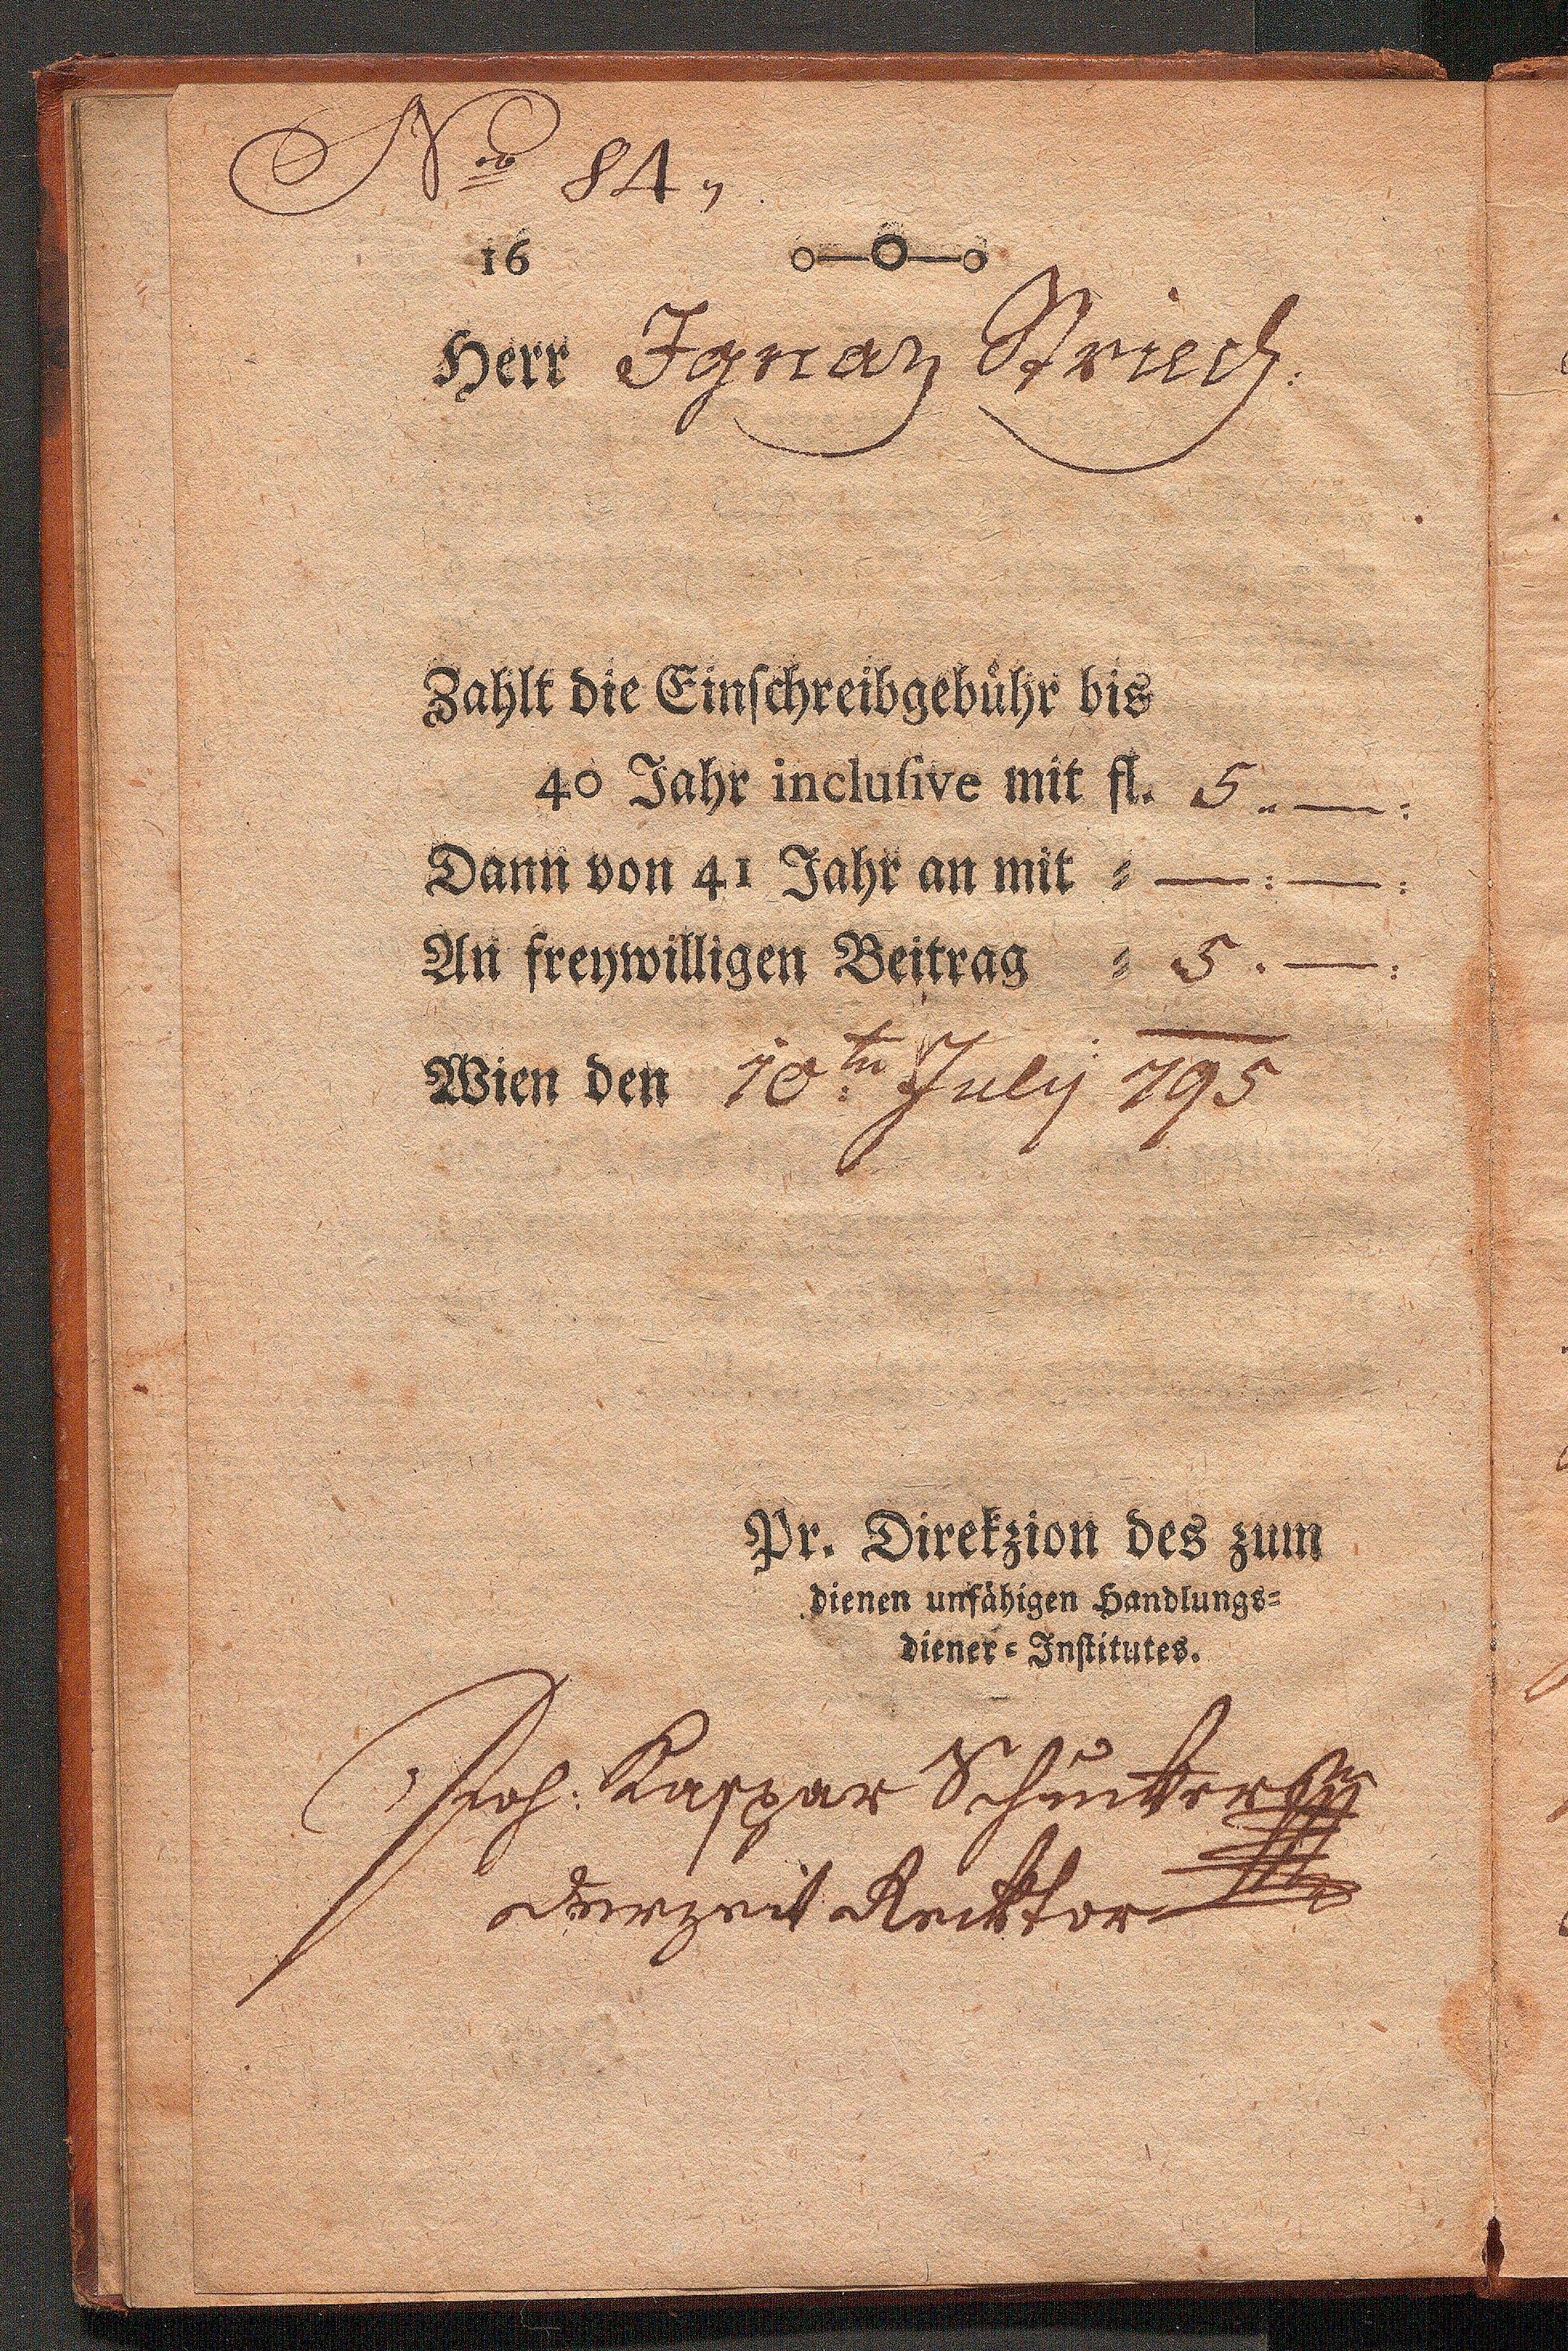 No 84,
16
Herr Ignaz Striech:
Zahlt die Einschreibgebühr bis
40 Jahr inclusive mit fl. 5 „ — :
Dann von 41 Jahr an mit = — : — :
An freywilligen Beitrag = 5 . — :
Wien den 10tn July 795
Pr. Direkzion des zum
dienen unfähigen Handlungs=
diener=Institutes.
Joh: Kaspar
derzeit Recktor